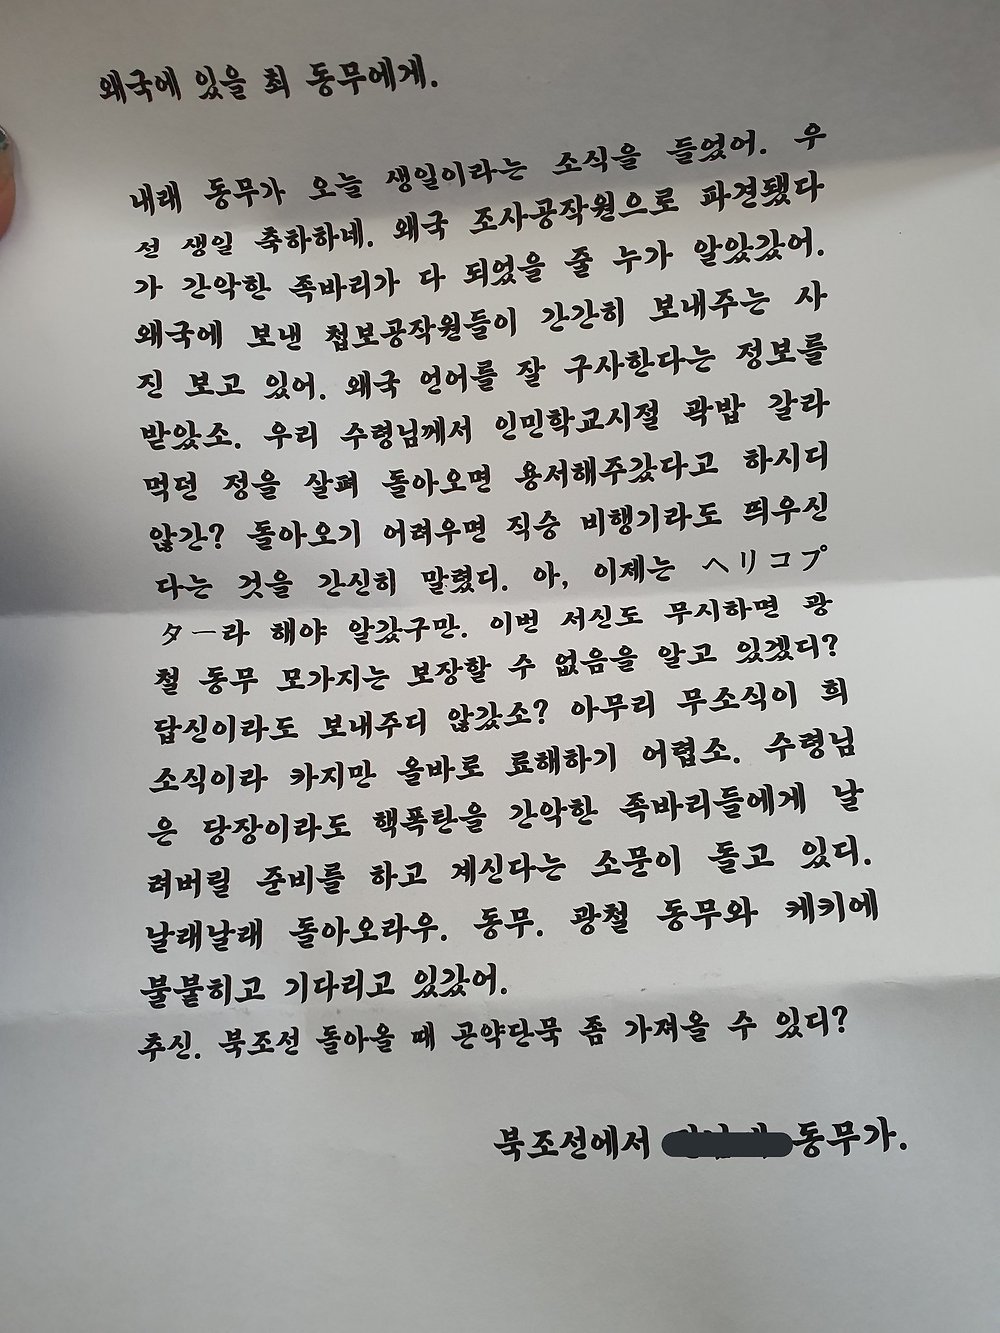 왜국에 있을 최 동무에게.
내래 동무가 오늘 생일이라는 소식을 들었어. 우
선 생일 축하하네. 왜국 조사공작원으로 파견됐다
가 간악한 족바리가 다 되었을 줄 누가 알았갔어.
왜국에 보낸 첩보공작원들이 간간히 보내주는 사
진 보고 있어. 왜국 언어를 잘 구사한다는 정보를
받았소. 우리 수령님께서 인민학교시절 곽밥 갈라
먹던 정을 살펴 돌아오면 용서해주갔다고 하시디
않간? 돌아오기 어려우면 직승 비행기라도 띄우신
다는 것을 간신히 말렸디. 아, 이제는 ヘリコプ
ター라 해야 알갔구만. 이번 서신도 무시하면 광
철 동무 모가지는 보장할 수 없음을 알고 있겠디?
답신이라도 보내주디 않갔소? 아무리 무소식이 희
소식이라 카지만 올바로 료해하기 어렵소. 수령님
은 당장이라도 핵폭탄을 간악한 족바리들에게 날
려버릴 준비를 하고 계신다는 소문이 돌고 있디.
날래날래 돌아오라우. 동무. 광철 동무와 케키에
불붙히고 기다리고 있갔어.
추신. 북조선 돌아올 때 곤약단묵 좀 가져올 수 있디?
북조선에서 동무가.